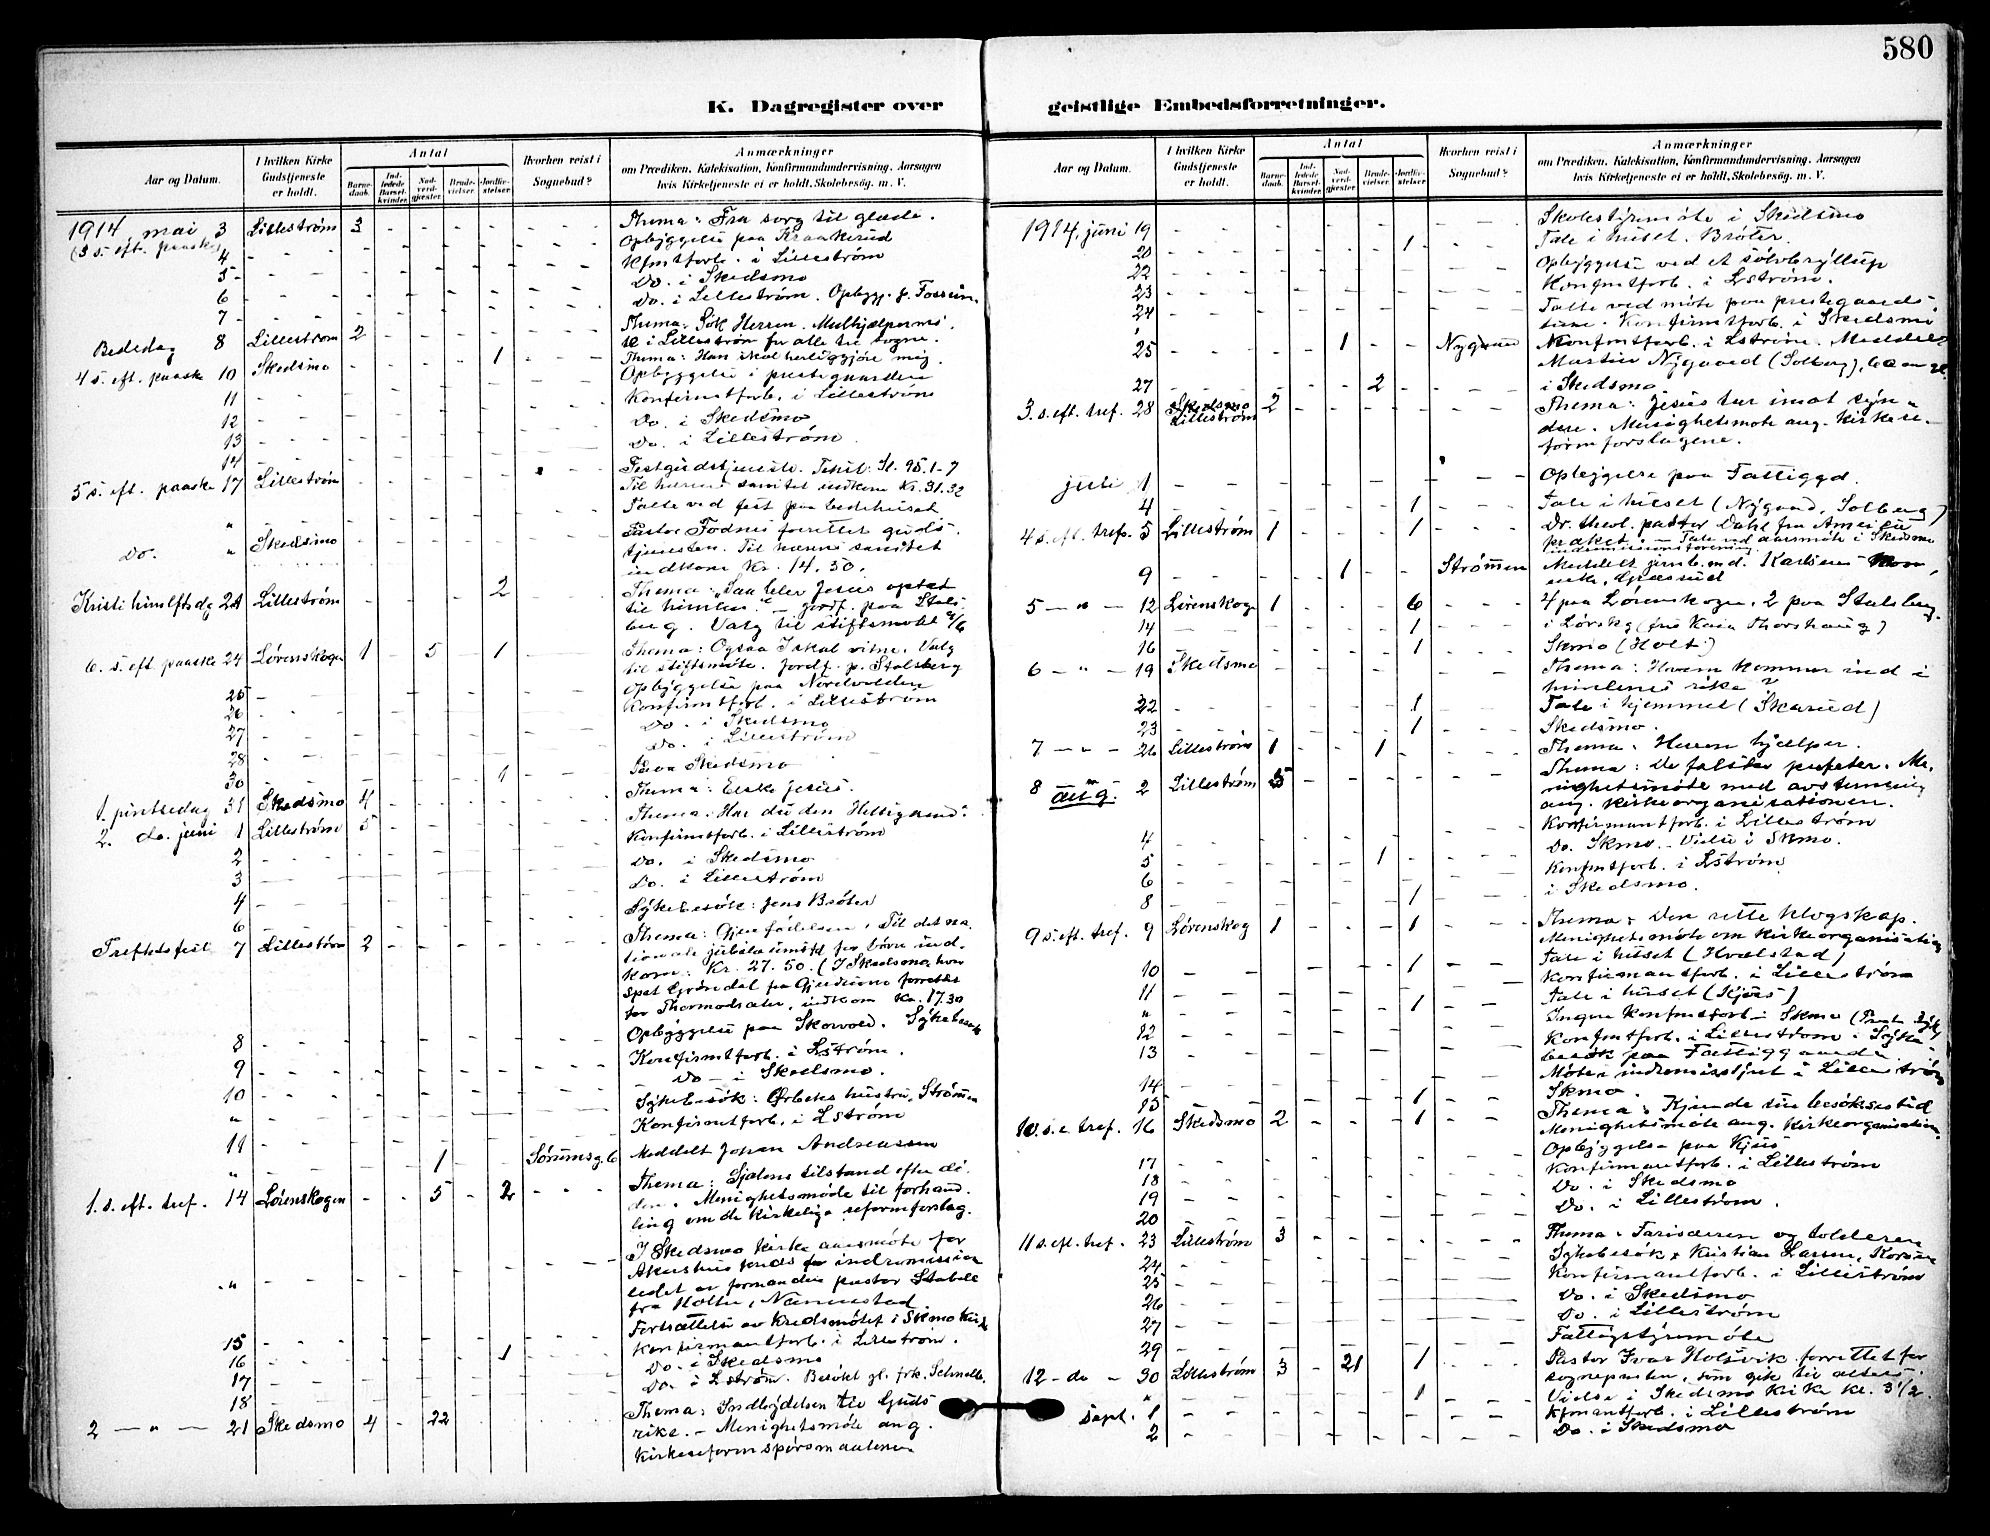 580
K. Dagregister over geistlige Embedsforretninger.
Aar og Datum.
I hvilken Kirke Gudstjeneste er holdt.
Antal
Barnedaab.
Indledede Barselkvinder.
Nadverdgjæster
Brudevielser
Jordfæstelser
Hvorhen reist i Sognebud?
Anmærkninger
om Prædiken, Katekisation, Konfirmandundervisning, Aarsagen
hvis Kirketjeneste ei er holdt, Skolebesøg. m. V.
1914, mai 3 Lillestrøm 3 - - - - Thema: Fra sorg til glæde.
(3 s. eft. paaske) 4 Opbyggelse paa Kraakerud
5 Kfmtforb. i Lillestrøm
6 Do. i Skedsmo
7 Do. i Lillestrøm. Opbygg. p. Fossum.
Bededag 8 Lillestrøm 2 Thema: Søk Herren. Medhjælpermø-
te i Lillestrøm for alle tre sogne.
4 s. eft. paaske 10 Skedsmo 1 Thema: Han skal herliggjøre mig.
Opbyggelse i prestegaarden
11 Konfirmtforb. i Lillestrøm
12 Do. i Skedsmo
13 Do. i Lillestrøm
14
5 s. eft. paaske 17 Lillestrøm Festgudstjeneste. Tekst: Sl. 95. 1-7
Til hærens sanitet indkom Kr. 31.32
" Talte ved fest paa bedehuset
Do. " Skedsmo Pastor Fodnes forrettet guds-
tjenesten. Til hærens sanitet
indkom Kr. 14.50.
Kristi himlftsdg 21 Lillestrøm 2 Thema: "Saa blev Jesus optat
til himlen" - jordf. paa Stals-
berg. Valg til stiftsmøtet 4/6
6. s. eft paaske 24 Lørenskogen 1 - 5 - 1 Thema: Ogsaa I skal vitne. Valg
til stiftsmøte. Jordf. p. Stalsberg
Opbyggelse paa Nordvolden
25 Konfirmtforb. i Lillestrøm
26 Do. i Skedsmo
27 Do. i Lillestrøm
28
30 1 Paa Skedsmo
1. pintsedag 31 Skedsmo 4 Thema: Elske Jesus.
2. do. juni 1 Lillestrøm 5 Thema: Har du den Helligaand?
2 Konfirmtforb. i Lillestrøm
3 Do. i Skedsmo
4 Do. i Lillestrøm
6 Sykebesøk: Jens Brøter
Trefhdsfest 7 Lillestrøm 2 Thema: Gjenfødelsen. Til det na-
tionale jubilæumsfd for børn ind-
kom: Kr. 27.50. (I Skedsmo, hvor
Spst Grøndal fra Gjerdrum forrettet
for Thormodsæter, indkom Kr. 17.30
Opbyggelse paa Skovold. Sykebesøk
8 Konfirmtforb. i Lstrøm.
9 Do - i Skedsmo.
10 Sykebesøk: Ørbeks hustru, Strømmen
" Konfirmtforb. i Lstrøm
11
" 1 Sørumsg. 6 Meddelt Johan Andreassen
1. s. eft. tref. 14 Lørenskogen - - 5 - 2 Thema: Sjælens tilstand efter dø-
den. Menighetsmøde til forhand-
ling om de kirkelige reformforslag.
" I Skedsmo kirke aarsmøte for
Akershus kreds for indremission
ledet av formanden pastor Stabell
fra Holter, Nannestad
15 Fortsættelse av kredsmøtet i Skmo kirke
16 1 Konfirmantforb. i Lillestrøm.
17 Do. i Skedsmo
18 Do. i Lstrøm. Besøkt gl. frk. Schnell.
2 - " - 21 Skedsmo 4 - 22 Thema: Indbydelsen til Guds
rike. - Menighetsmøte ang.
kirkereformspørsmaalene
Aar og Datum.
I hvilken Kirke Gudstjeneste er holdt.
Antal
Barnedaab.
Indledede Barselkvinder.
Nadverdgjæster
Brudevielser
Jordfæstelser
Hvorhen reist i Sognebud?
Anmærkninger
om Prædiken, Katekisation, Konfirmandundervisning, Aarsagen
hvis Kirketjeneste ei er holdt, Skolebesøg. m. V.
1914, juni 19 Skolestyremøte i Skedsmo
20 1 Tale i huset. Brøter.
22 Opbyggelse ved et sølvbryllup
23 Konfirmtforb. i Lstrøm.
24 Talte ved møte paa prestegaards-
tunet. Konfirmtforb. i Skedsmo
25 1 Nygaard Konfirmtforb. i Lstrøm. Meddelt
Martin Nygaard (Solberg), 60 aar gl.
27 2 i Skedsmo.
3. s. eft. tref. 28 Skedsmo Lillestrøm 2 Thema: Jesus tar imot syn-
dere. Menighetsmøte ang. kirkere-
formforslagene.
juli 1 Opbyggelse paa Fattiggd.
4 1 Tale i huset (Nygaard, Solberg)
4 s. eft. tref. 5 Lillestrøm 1 1 Dr. theol. pastor Dahl fra Amerika
præket. - Tale ved aarsmøte i Skedsmo
indremissionsforening.
9 1 Strømmen Meddelt jernb.md. Karlsens
enke, Græsrud
5 - " - 12 Lørenskogen 1 6 4 paa Lørenskogen, 2 paa Stalsberg.
14 1 i Lørskg (frk Kaia Thorshaug)
16 1 Skmo (Holt)
6 - " - 19 Skedsmo Thema: Hvem kommer ind i
himlenes rike?
22 1 Tale i hjemmet (Skarud)
23 1 Skedsmo.
7 - " - 26 Lillestrøm 1 - - 1 Thema: Herren hjælper.
8 " aug. 2 Lillestrøm 5 Thema: De falske profeter. Me-
nighetsmøte med avstemning
ang. kirkeorganisationen.
4 Konfirmantforb. i Lillestrøm
5 1 Do. Skmo. - Vielse i Skmo.
6 Konfmtforb. i Lstrøm
8 1 i Skedsmo.
9 s. eft. tref. 9 Lørenskog 1 1 Thema: Den rette klogskap.
Menighetsmøte om kirkeorganisation
10 1 Tale i huset (Hvalstad)
11 Konfirmantforb. i Lillestrøm
" 1 Tale i huset (Kjæs)
12 Ingen konfmtforb. i Skmo (Prest syk)
13 Konfmtforb. i Lillestrøm. - Syke-
besøk paa Fattiggaarden.
14 Møte i indremisstyret i Lillestrøm
15 1 Skmo.
10. s. e. tref. 16 Skedsmo 2 1 Thema: Kjende sin besøkelsestid
Menighetsmøte ang. kirkeorganisation.
Opbyggelse paa Kjus
17 Konfirmantforb. i Lillestrøm
18 Do. i Skedsmo
19 Do. i Lillestrøm.
20
11 s. eft. tref. 23 Lillestrøm 3 Thema: Farisæeren og tolderen
24 Sykebesøk: Kristian Larsen,
25 Konfirmantforb. i Lillestrøm
26 Do. i Skedsmo
27 Do. i Lillestrøm
29 Fattigstyremøte
12 - do - 30 Lillestrøm 3 - 21 1 Pastor Ivar Holsvik forrettet for
sognepresten, som gik til alters.
" 1 Vielse i Skedsmo kirke kl. 3 1/2.
Sept. 1 Kfmantforb. i Lillestrøm
2 Do. i Skedsmo